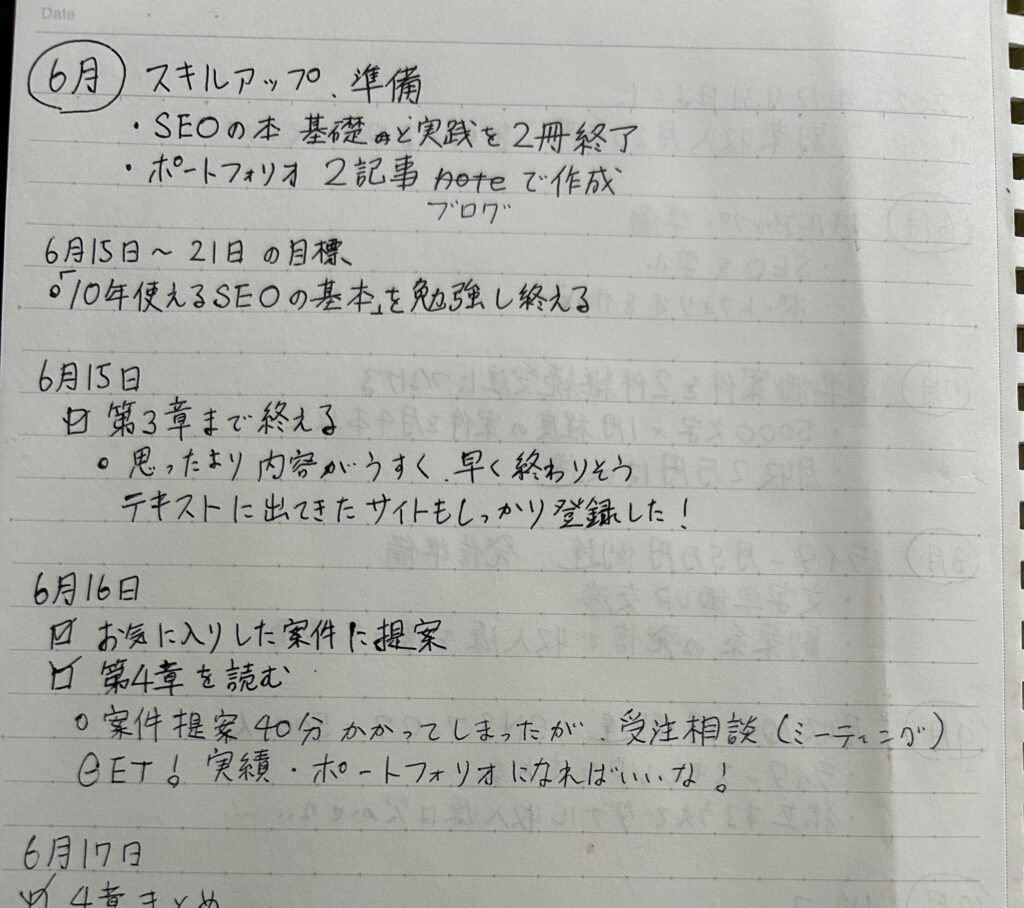 Date
6月 スキルアップ、準備
・SEOの本 基礎と実践を2冊終了
・ポートフォリオ 2記事 note で作成
ブログ
6月15日～21日の目標
○「10年使えるSEOの基本」を勉強し終える
6月15日
☑ 第3章まで終える
○ 思ったより内容がうすく、早く終わりそう
テキストに出てきたサイトもしっかり登録した！
6月16日
☑ お気に入りした案件に提案
☑ 第4章を読む
○ 案件提案40分かかってしまったが、受注相談（ミーティング）
GET！ 実績・ポートフォリオになればいいな！
6月17日
☑ 4章まとめ